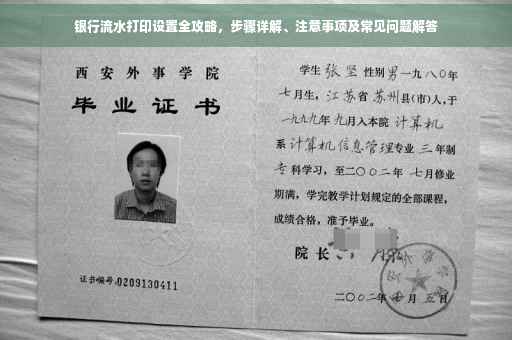 银行流水打印设置全攻略，步骤详解、注意事项及常见问题解答
西安外事学院
毕业证书
证书编号:0209130411
学生张坚性别男一九八〇年
七月生，江苏省苏州县(市)人,于
一九九九年九月入本院计算机
系计算机信息管理专业三年制
专科学习，至二〇〇二年七月修业
期满，学完教学计划规定的全部课程，
成绩合格，准予毕业。
院长
二〇〇二年 月五日